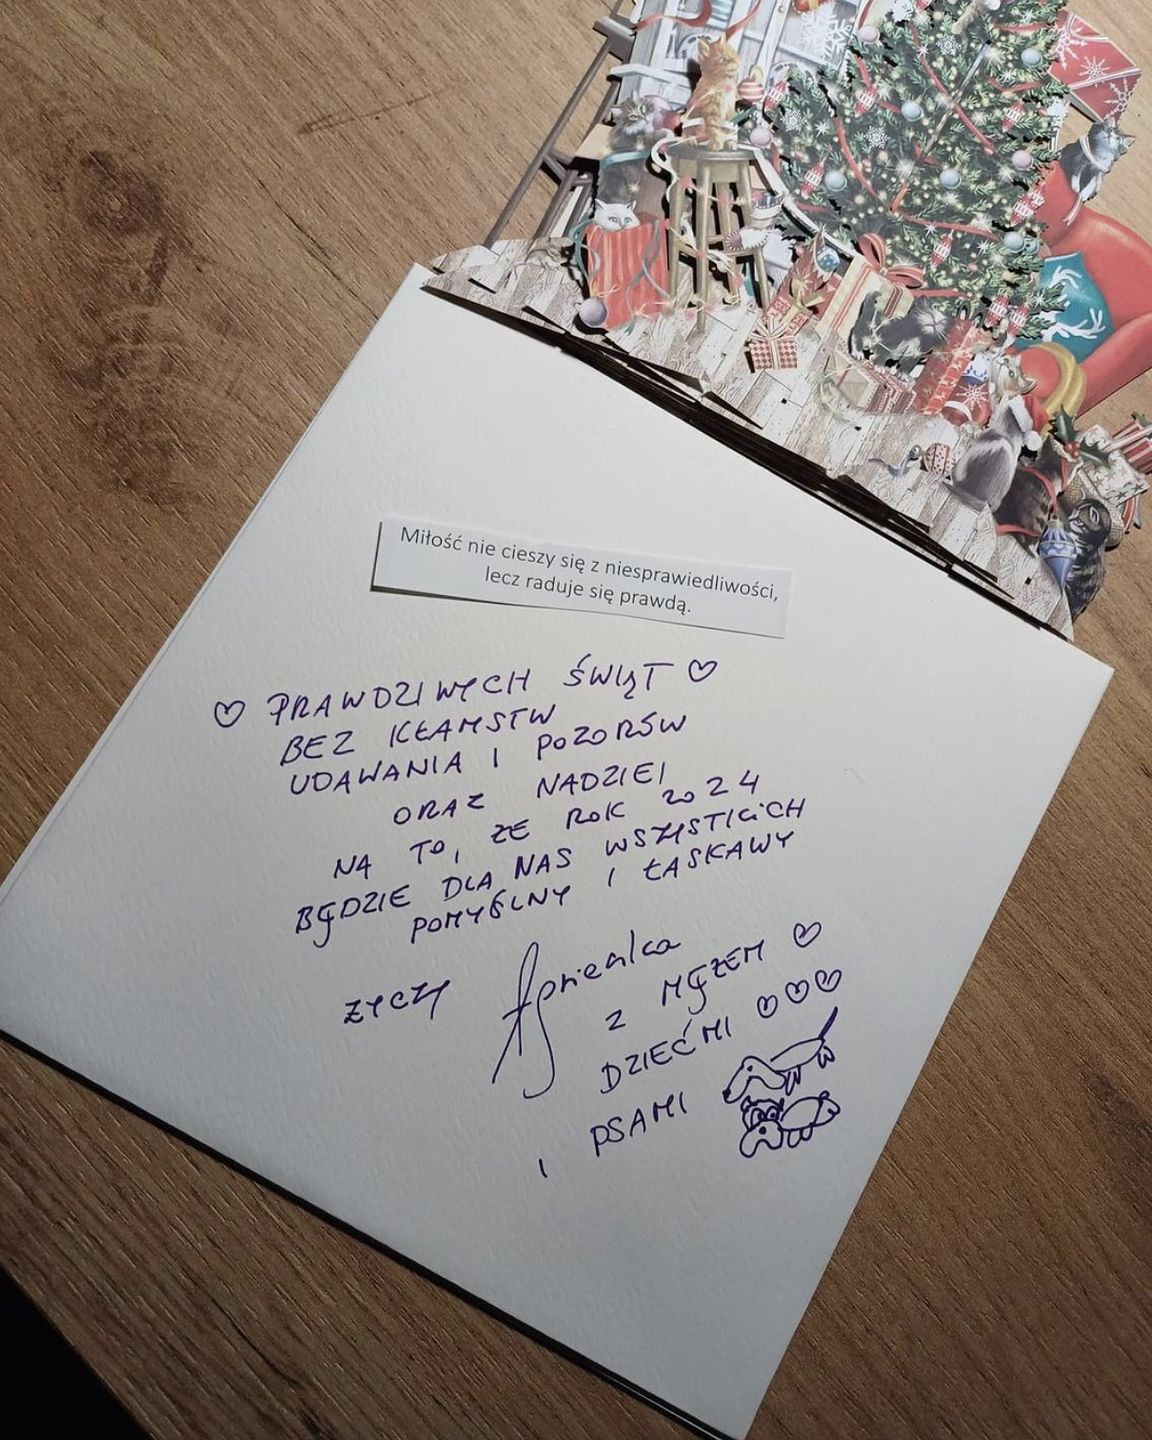 Miłość nie cieszy się z niesprawiedliwości,
lecz raduje się prawdą.
♡ PRAWDZIWYCH ŚWIĄT ♡
BEZ KŁAMSTW
UDAWANIA I POZORÓW
ORAZ NADZIEI
NA TO, ŻE ROK 2024
BĘDZIE DLA NAS WSZYSTKICH
POMYŚLNY I ŁASKAWY
ŻYCZY Agnieszka
Z MĘŻEM ♡
DZIEĆMI ♡♡♡
I PSAMI